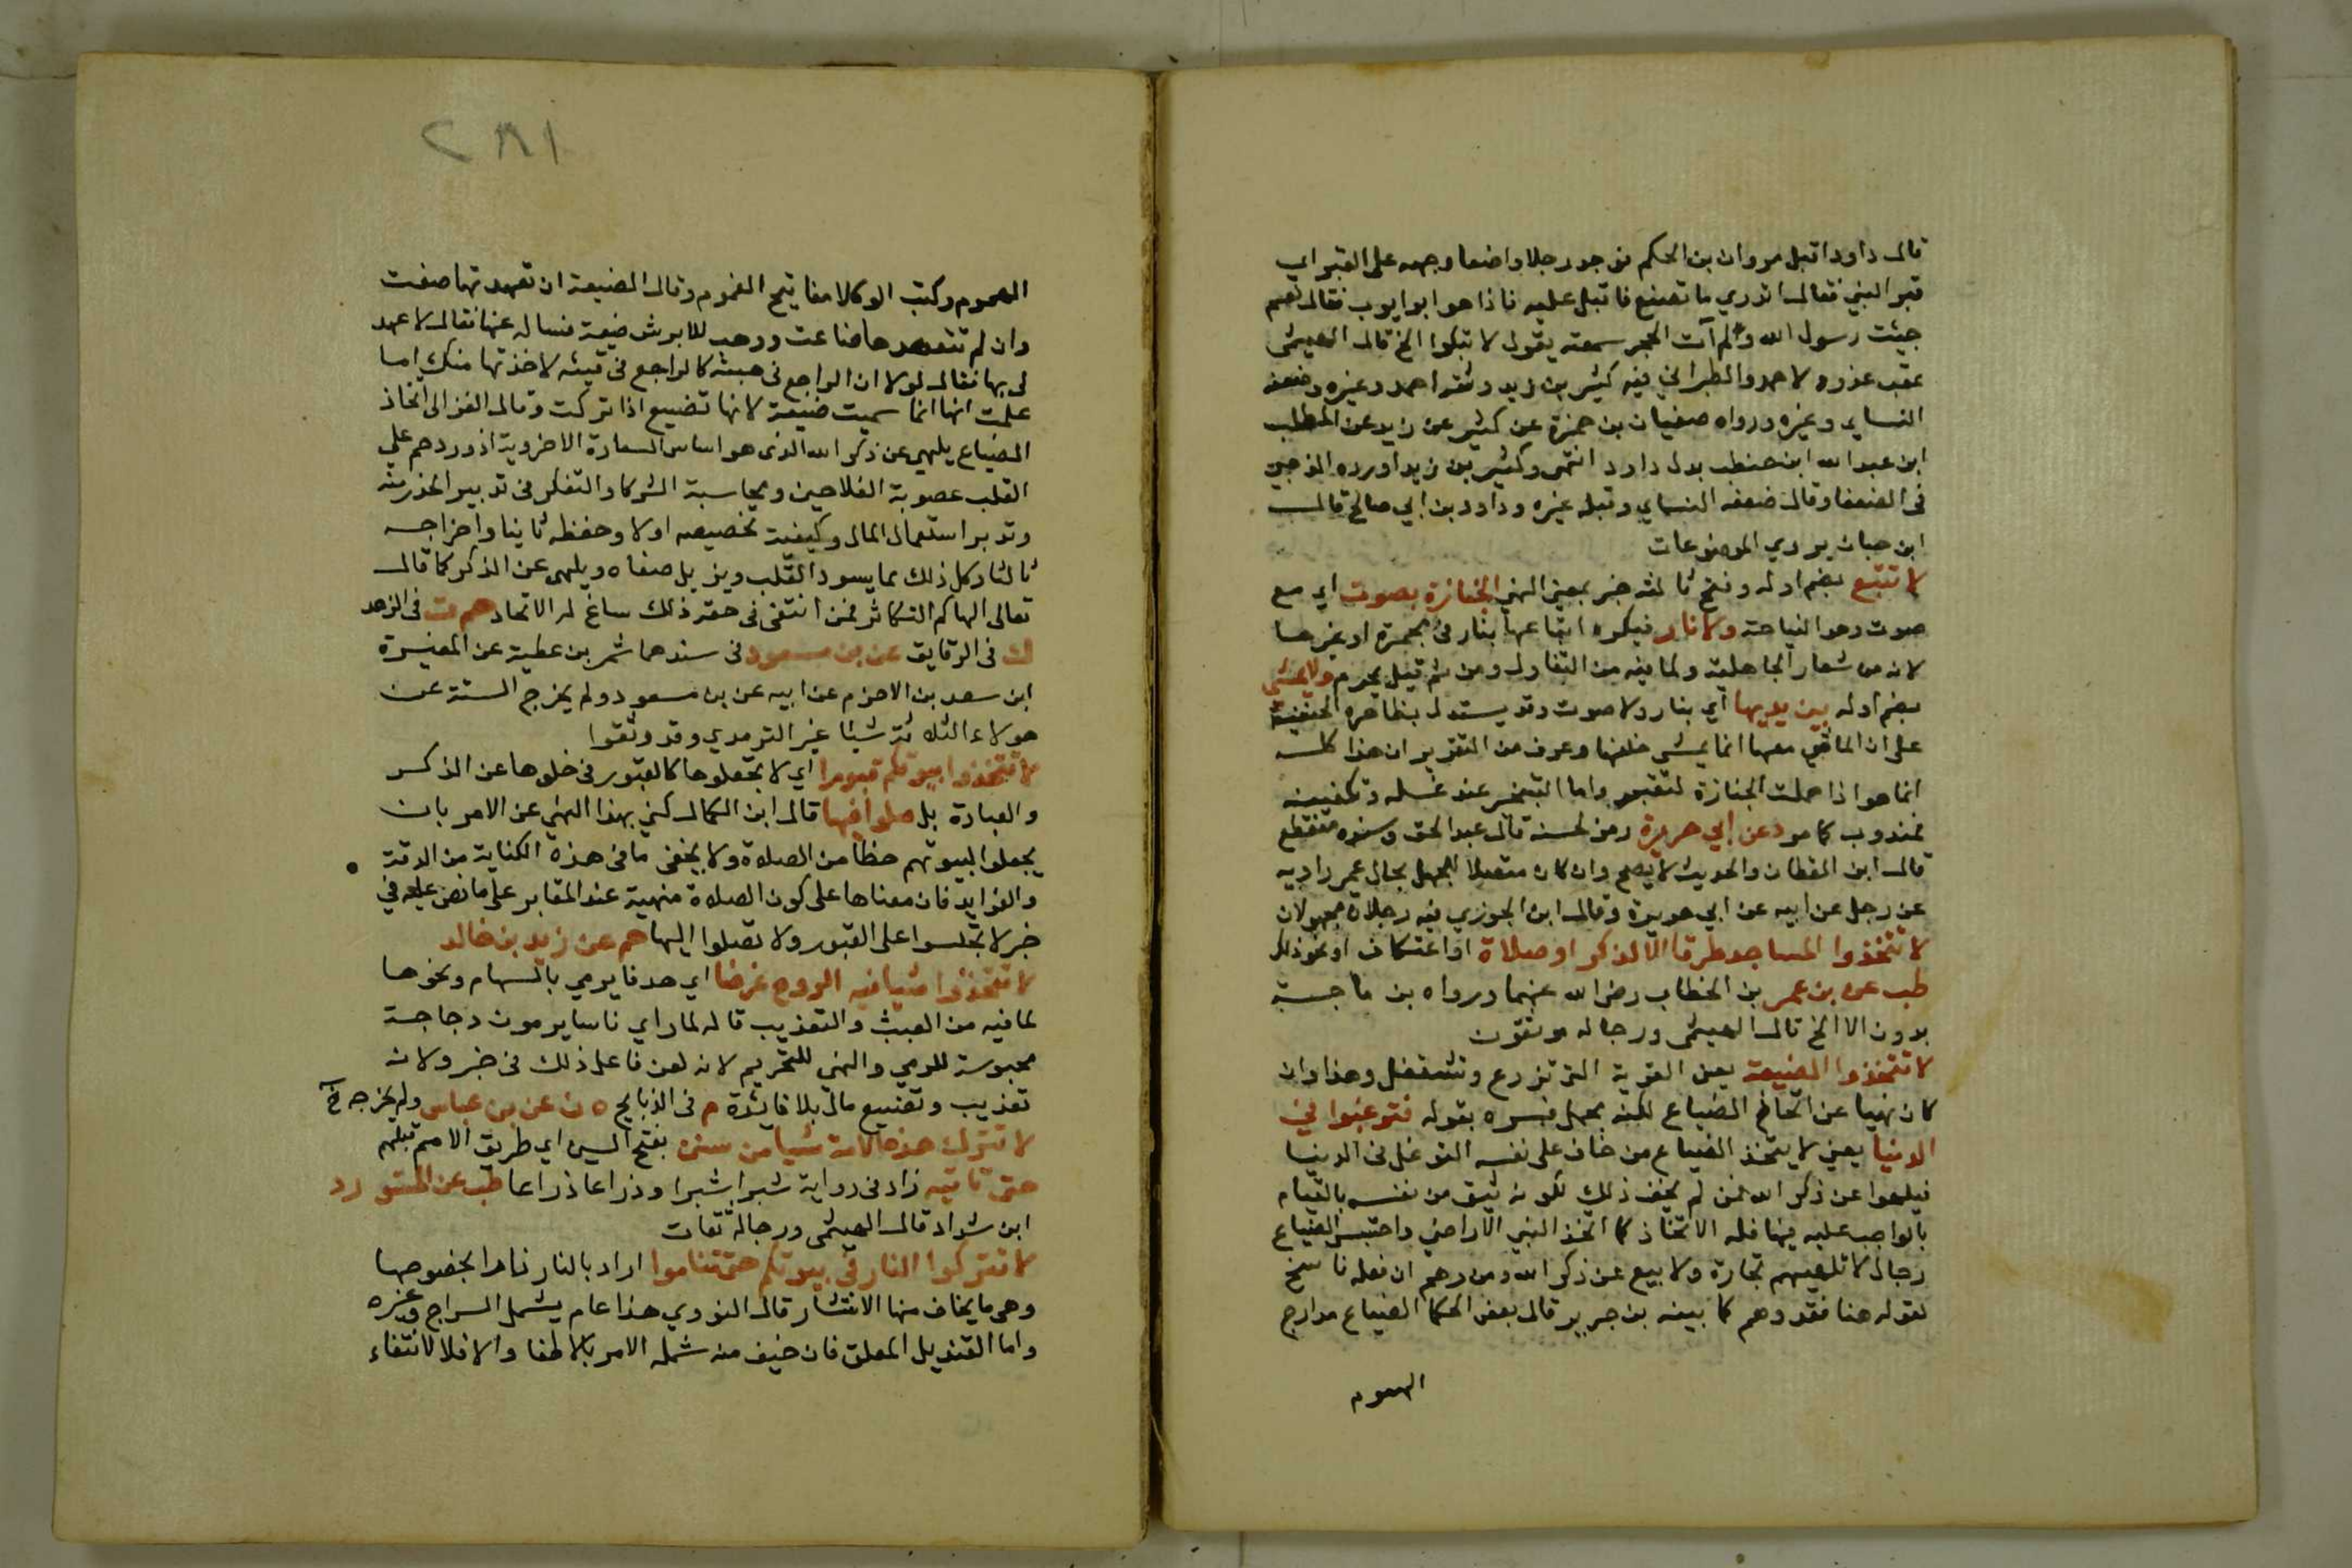 قال داود اقبل مروان بن الحكم فوجد رجلا واضعا وجهه على القبر اي
قبر النبي فقال اتدري ما تصنع فاقبل عليه فاذا هو ابو ايوب فقال نعم
جئت رسول الله ولم آت الحجر سمعته يقول لا تبكوا الخ قال الهيثمي
عقب عزوه لاحمد والطبراني فيه كثير بن زيد وثقه احمد وغيره وضعفه
النساي وغيره ورواه صفيان بن حمزة عن كثير عن زيد عن المطلب
ابن عبدالله ابن حنطب بدل داود انتهى وكثير بن زيد اورده الذهبي
في الضعفا وقال ضعفه النساي وقبله غيره وداود بن ابي صالح قال
ابن حبان يروي الموضوعات
لا تتبع بضم اوله وفتح ثالثه خبر بمعنى النهي الجنازة بصوت اي مع
صوت وهو النياحة ولا نار فيكره اتباعها بنار في مجمرة او غيرها
لانه من شعار الجاهلية ولما فيه من التفاول ومن ثم قيل يحرم ولا يمشي
بضم اوله بين يديها اي بنار ولا صوت وقد يستدل بظاهره الحنفية
على ان الماشي معها انما يمشي خلفها وعرف من التقرير ان هذا كله
انما هو اذا حملت الجنازة لتقبر واما التبخر عند غسله وتكفينه
فمندوب كما مر د عن ابي هريرة رمز لحسنه قال عبد الحق وسنده منقطع
قال ابن القطان والحديث لا يصح وان كان متصلا للجهل بحال عمر راويه
عن رجل عن ابيه عن ابي هريرة وقال ابن الجوزي فيه رجلان مجهولان
لا تتخذوا المساجد طرقا الا لذكر او صلاة او اعتكاف او نحو ذلك
طب عن بن عمر بن الخطاب رضي الله عنهما ورواه بن ماجه
بدون الا الخ قال الهيثمي ورجاله موثقون
لا تتخذوا الضيعة يعني القرية التي تزرع وتستغل وهذا وان
كان نهيا عن اتخاذ الضياع لكنه مجمل فسره بقوله فترغبوا في
الدنيا يعني لا يتخذ الضياع من خاف على نفسه التوغل في الدنيا
فيلهوا عن ذكر الله فمن لم يخف ذلك لكونه يثق من نفسه بالقيام
بالواجب عليه فيها فله الاتخاذ كما اتخذ النبي الاراضي واحتبس الضياع
رجال لا تلهيهم تجارة ولا بيع عن ذكر الله ومن زعم ان فعله ناسخ
لقوله هنا فقد وهم كما بينه بن جرير قال بعض الحكما الضياع مدارج
الهموم
٢٨١
الهموم وكتب الوكلا مفاتيح الغموم وقال الضيعة ان تعهدتها ضفت
وان لم تتعهدها ضاعت ووهب للابرش ضيعة فساله عنها فقال لا عهد
لي بها فقال لولا ان الراجع في هبته كالراجع في قيئه لاخذتها منك اما
علمت انها انما سميت ضيعة لانها تضيع اذا تركت وقال الغزالي اتخاذ
الضياع يلهي عن ذكر الله الذي هو اساس السعادة الاخروية اذ يزدحم على
القلب عصوبة الفلاحين ومحاسبة الشركا والتفكر في تدبير الحذر منه
وتدبر استعمال المال وكيفية تخصيصه اولا وحفظه ثانيا واخراجه
ثالثا وكل ذلك مما يسود القلب ويزيل صفاه ويلهي عن الذكر كما قال
تعالى الهاكم التكاثر فمن انتفى في حقه ذلك ساغ له الاتحاد حم ت في الزهد
ك في الرقايق عن بن مسعود في سندهما شمر بن عطية عن المغيرة
ابن سعد بن الاخرم عن ابيه عن بن مسعود ولم يخرج الستة عن
هولاء الثلاثة شيئا غير الترمدي وقد وثقوا
لا تتخذوا بيوتكم قبورا اي لا تجعلوها كالقبور في خلوها عن الذكر
والعبادة بل صلوا فيها قال ابن الكمال كني بهذا النهي عن الامر بان
يجعلوا لبيوتهم حظا من الصلاة ولا يخفى ما في هذه الكناية من الدقة
والفوايد فان مبناها على كون الصلاة منهية عند المقابر على ما نص عليه في
خبر لا تجلسوا على القبور ولا تصلوا اليها حم عن زيد بن خالد
لا تتخذوا شيا فيه الروح غرضا اي هدفا يرمي بالسهام ونحوها
لما فيه من العبث والتعذيب قاله لما راي ناسا يرمون دجاجة
محبوسة للرمي والنهي للتحريم لانه لعن فاعل ذلك في خبر ولانه
تعذيب وتضييع مال بلا فائدة م في الذبايح ه ن عن بن عباس ولم يخرجه خ
لا تترك هذه الامة شيا من سنن بفتح السين اي طريق الامم قبلهم
حتى تاتيه زاد في رواية شبرا بشبرا وذراعا ذراعا طب عن المستورد
ابن شداد قال الهيثمي ورجاله ثقات
لا تتركوا النار في بيوتكم حتى تناموا اراد بالنار نارا بخصوصها
وهي ما يخاف منها الانتشار قال النووي هذا عام يشمل السراج وغيره
واما القنديل المعلق فان خيف منه شمله الامر بالاطفا والا فلا لانتفاء